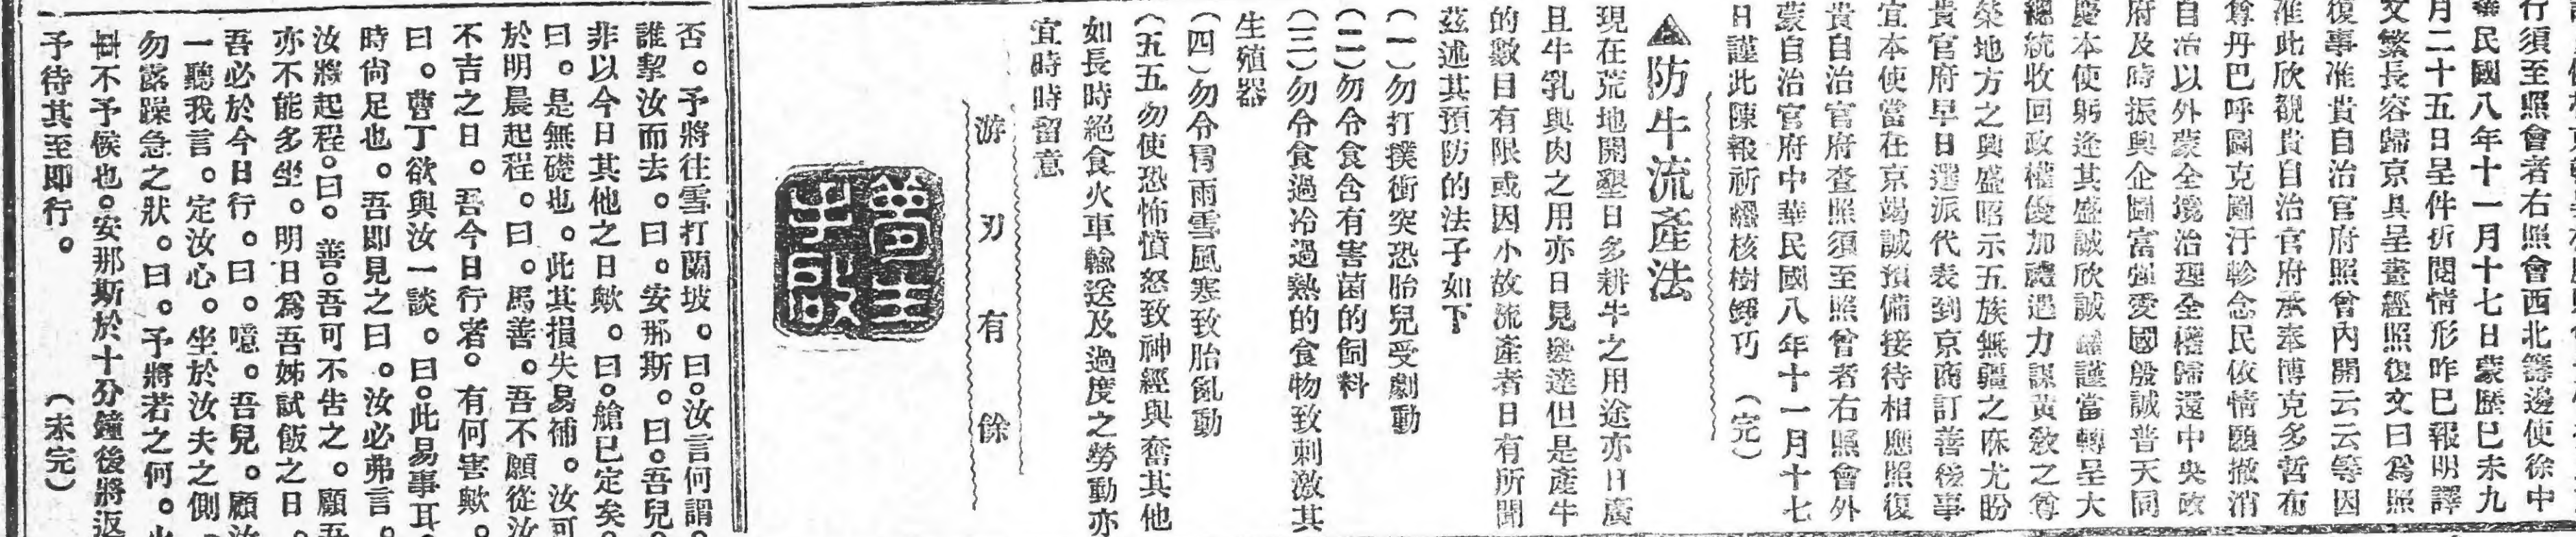 行須至照會者右照會西北籌邊使徐中
華民國八年十一月十七日蒙歷已未九
月二十五日呈件折閱情形昨已報明譯
文繁長容歸京具呈臺經照復文曰爲照
復事准貴自治官府照會內開云云等因
准此欣觀貴自治官府承奉博克多哲布
尊丹巴呼圖克圖汗軫念民依情願撤消
自治以外蒙全境治理全權歸還中央政
府及時振興企圖富强愛國殷誠普天同
慶本使躬逢其盛誠欣誠 謹當轉呈大
總統收回政權優加禮遇力謀黃敎之尊
榮地方之興盛昭示五族無疆之庥尤盼
貴官府早日選派代表到京商訂善後事
宜本使當在京竭誠預備接待相應照復
貴自治官府查照須至照會者右照會外
蒙自治官府中華民國八年十一月十七
日謹此陳報祈 核樹錚巧　（完）
▲防牛流產法
現在荒地開墾日多耕牛之用途亦日廣
且牛乳與肉之用亦日見發達但是產牛
的數目有限或因小故流產者日有所聞
茲述其預防的法子如下
（一）勿打撲衝突恐胎兒受劇動
（二）勿令食含有害菌的飼料
（三）勿令食過冷過熱的食物致刺激其
生殖器
（四）勿令冒雨雪風寒致胎亂動
（五五勿使恐怖憤怒致神經與奮其他
如長時絕食火車輸送及過度之勞動亦
宜時時留意
游刃有餘
否。予將往雪打蘭坡。曰。汝言何謂。
誰挈汝而去。曰。安那斯。曰。吾兒。
非以今日其他之日歟。曰。艙已定矣。
曰。是無礙也。此其損失易補。汝可
於明晨起程。曰。馬善。吾不願從汝
不吉之日。吾今日行者。有何害歟。
曰。曹丁欲與汝一談。曰。此易事耳。
時尙足也。吾卽見之曰。汝必弗言。
汝將起程。曰。善。吾可不告之。顧吾
亦不能多坐。明日爲吾姊試飯之日。
吾必於今日行。曰。噫。吾兒。顧汝
一聽我言。定汝心。坐於汝夫之側。
勿露躁急之狀。曰。予將若之何。
不予候也。安那斯於十分鐘後將返
予待其至即行。　（未完）